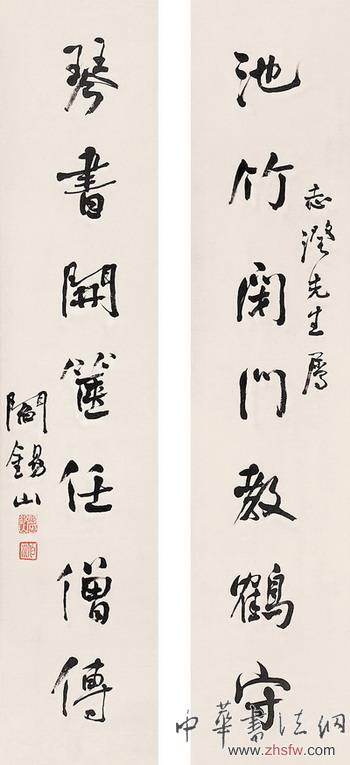 志澄先生屬
池竹閉門教鶴守
琴書開篋任僧傳
閻錫山
中華書法網
www.zhsfw.com